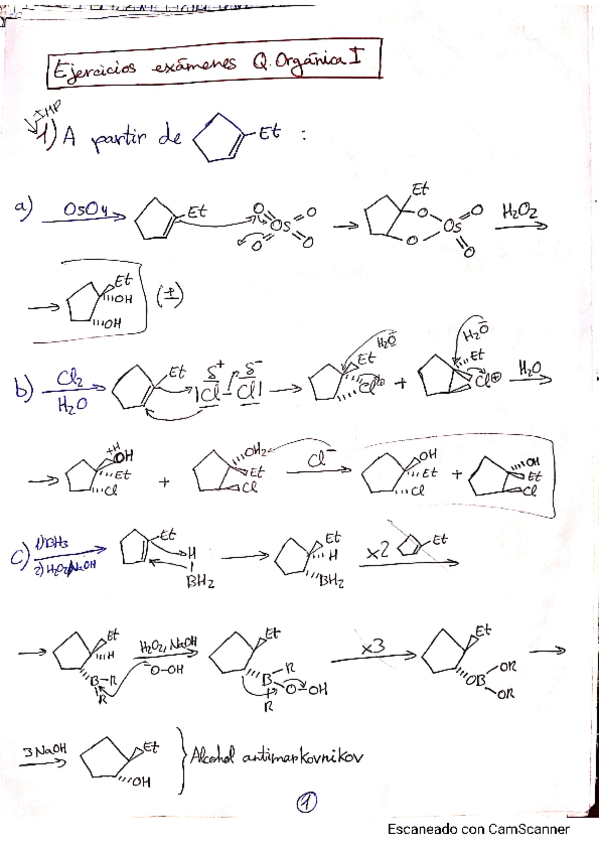 Ejercicios exámenes Q. Orgánica I
IMP
1) A partir de Et :
a) OsO4 Et O O Os O O Et O O Os O O H2O2
Et OH OH (±)
b) Cl2 H2O Et δ+ δ- |Cl-Cl| H2O Et Cl⊕ + H2O Et Cl⊕ H2O
+H OH Et Cl + OH2 Et Cl Cl- OH Et Cl + OH Et Cl
c) 1) BH3 2) H2O2, NaOH Et H BH2 Et H BH2 x2 Et
Et H B-R R H2O2, NaOH O-OH Et B-R O-OH R x3 Et OB OR OR
3 NaOH Et OH } Alcohol antimarkovnikov
1
Escaneado con CamScanner